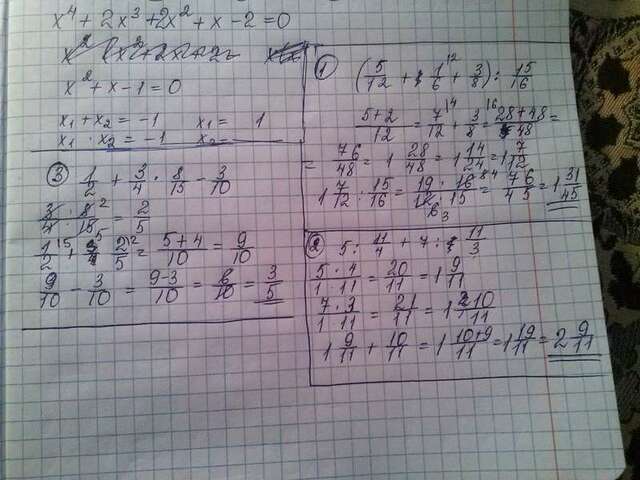 x⁴ + 2x³ + 2x² + x - 2 = 0
x² + x - 1 = 0
x₁ + x₂ = -1 x₁ = 1
x₁ · x₂ = -1 x₂ =
③ 1/2 + 3/4 · 8/15 - 3/10
3/4 · 8/15 = 2/5
1/2 + 2/5 = 5+4/10 = 9/10
9/10 - 3/10 = 9-3/10 = 6/10 = 3/5
①
(5/12 + 1/6 + 3/8) : 15/16
5+2/12 = 7/12 + 3/8 = 28+48/48 =
= 76/48 = 1 28/48 = 1 14/24 = 1 7/12
1 7/12 : 15/16 = 19/12 · 16/15 = 76/45 = 1 31/45
② 5 : 11/4 + 7 : 11/3
5/1 · 4/11 = 20/11 = 1 9/11
7/1 · 3/11 = 21/11 = 1 10/11
1 9/11 + 10/11 = 1 10+9/11 = 1 19/11 = 2 9/11